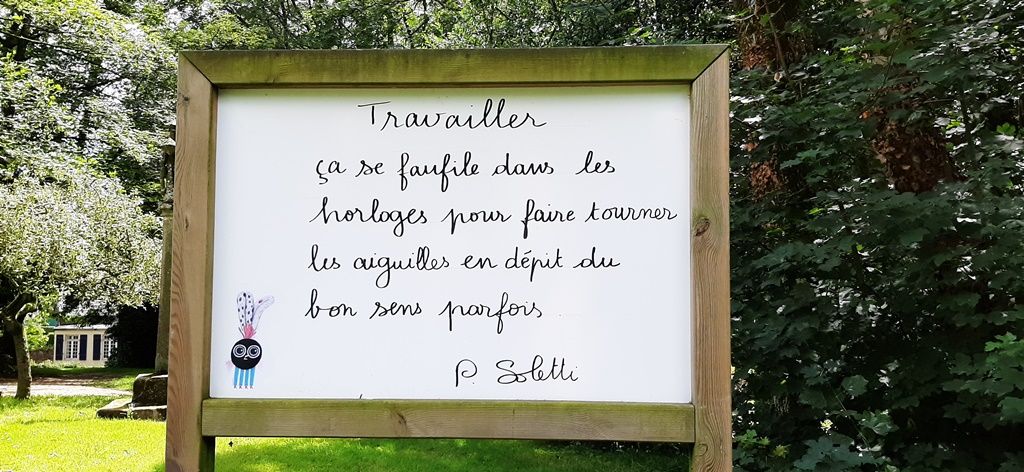 Travailler
ça se faufile dans les
horloges pour faire tourner
les aiguilles en dépit du
bon sens parfois
P. Soletti